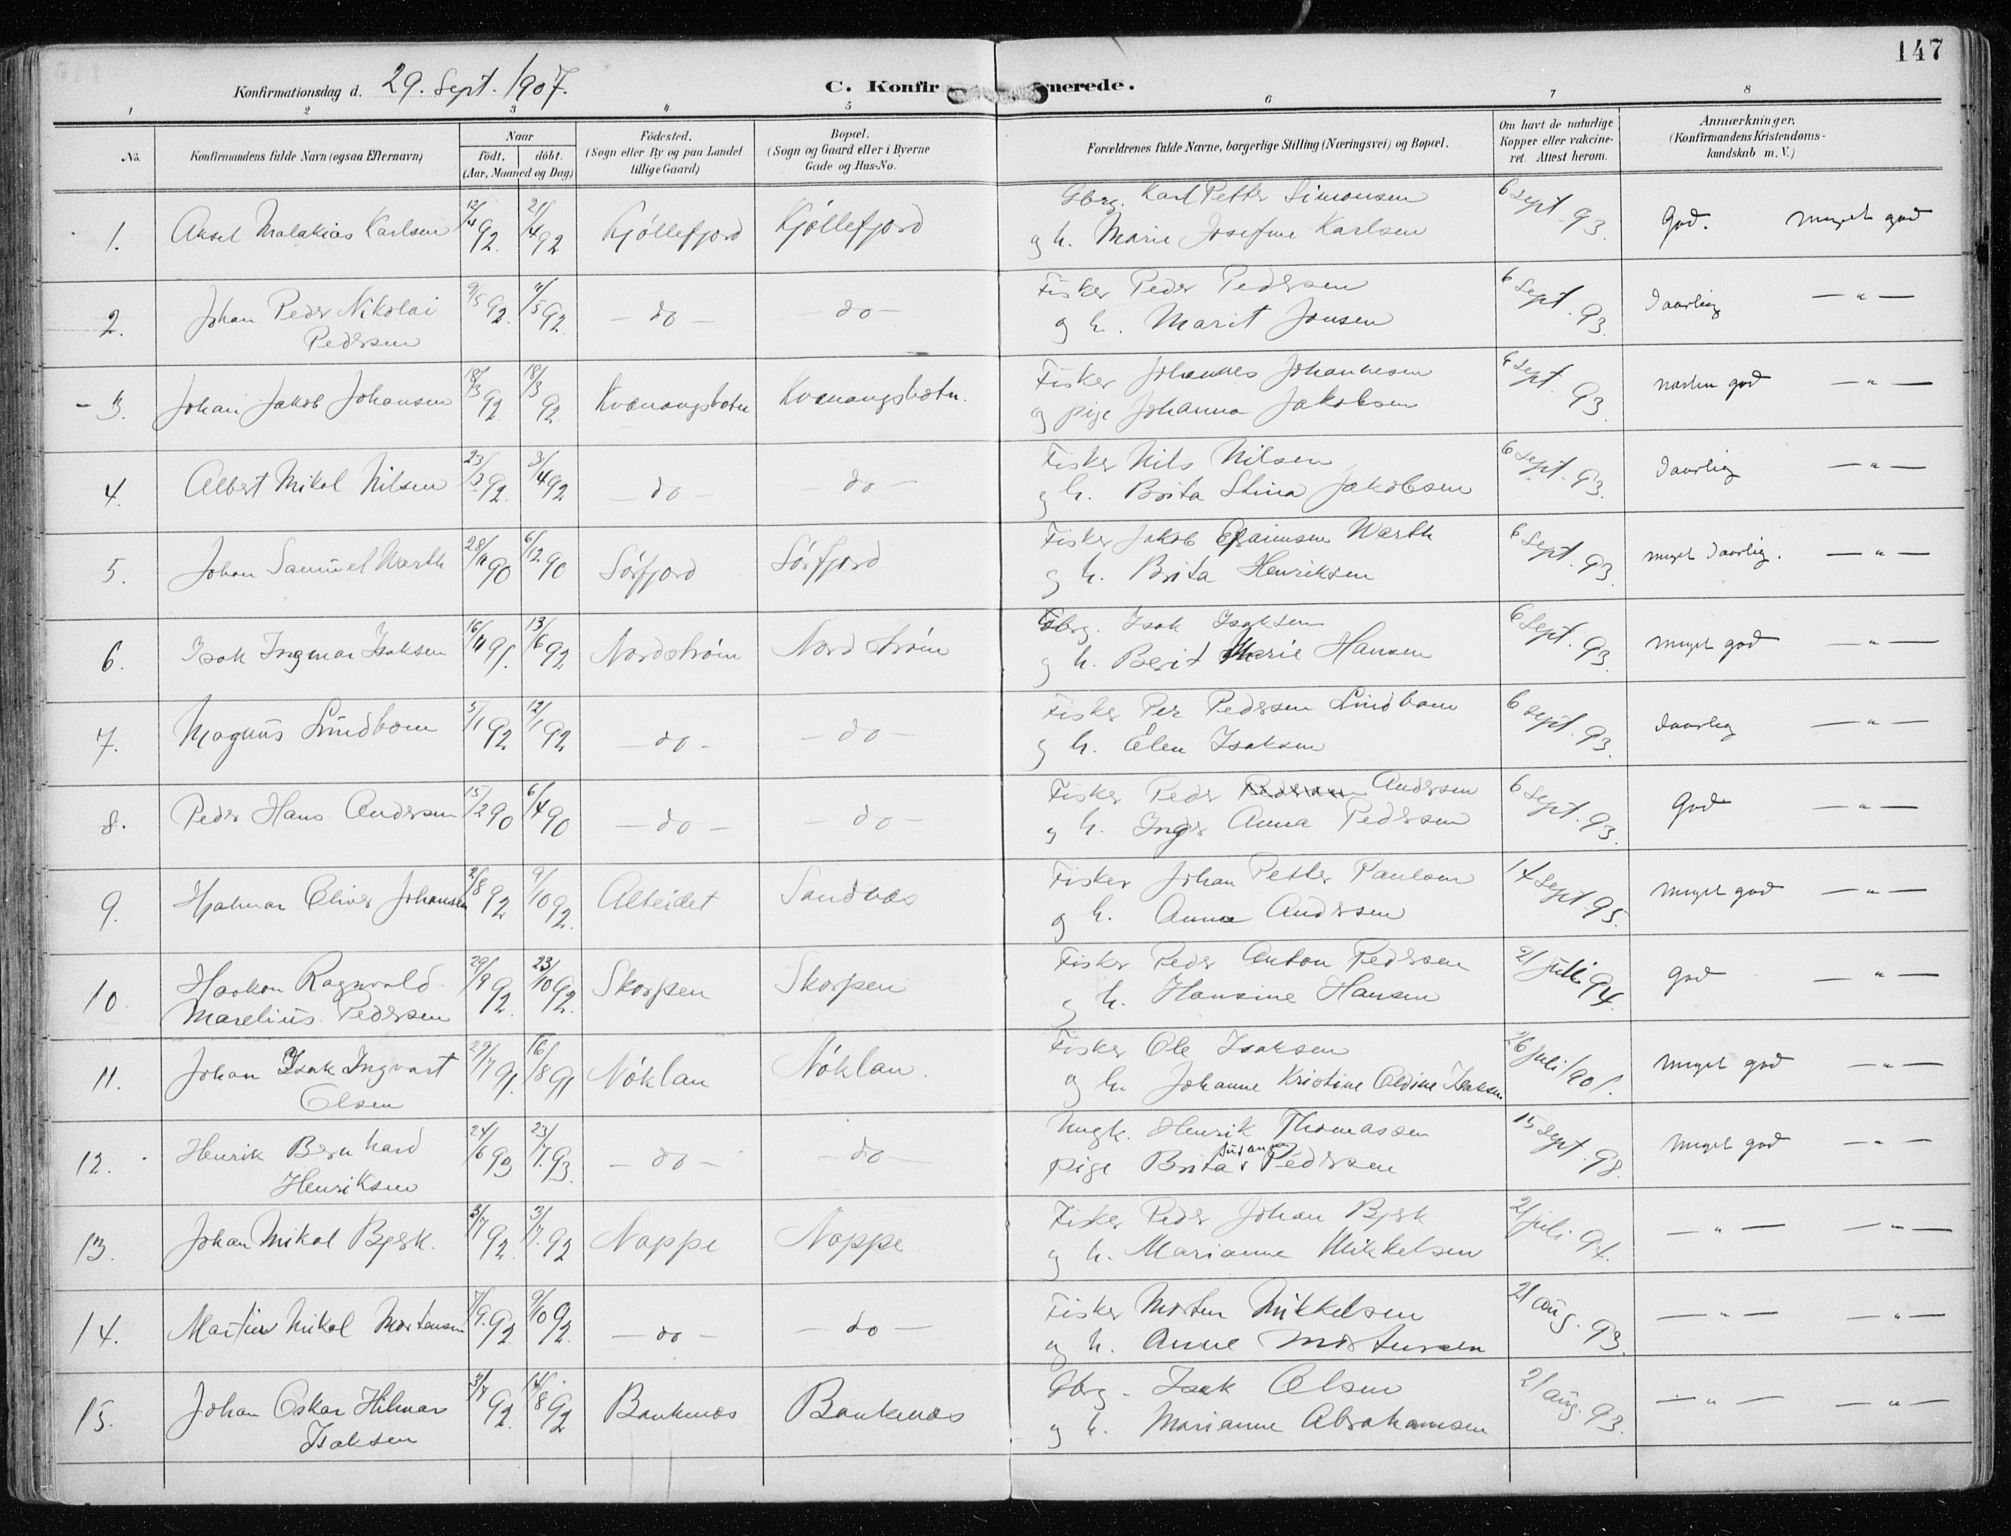 147
Konfirmationsdag d. 29. Sept. 1907.
C. Konfir merede.
1 2 3 4 5 6 7 8
No. Konfirmandens fulde Navn (ogsaa Efternavn) Naar født. døbt. (Aar, Maaned og Dag) Fødested. (Sogn eller By og paa Landet tillige Gaard) Bopæl. (Sogn og Gaard eller i Byerne Gade og Hus-No. Forældrenes fulde Navne, borgerlige Stilling (Næringsvei) og Bopæl. Om havt de naturlige Kopper eller vakcineret. Attest herom. Anmærkninger. (Konfirmandens Kristendomskundskab m. V.)
1. Aksel Malakias Karlsen 12/4 92. 24/4 92 Kjøllefjord Kjøllefjord Gbrg. Karl Petter Simonsen 6 Sept. 93. God. meget god
og h. Marie Josefine Karlsen
2. Johan Peder Nikolai 9/5 92. /5 92. - do - - do - Fisker Peder Pedersen 6 Sept. 93. daarlig - " -
Pedersen og h. Marit Jonsen
3. Johan Jakob Johansen 18/3 92. 18/3 92 Kvænangsbotn Kvænangsbotn. Fisker Johannes Johannesen 6 Sept. 93 næsten god - " -
og pige Johanna Jakobsen
4. Albert Mikal Nilsen 23/3 92. 3/4 92 - do - - do - Fisker Nils Nilsen 6 Sept. 93. daarlig - " -
og h. Brita Stina Jakobsen
5. Johan Samuel Warth 28/11 90 6/12 90 Sørfjord Sørfjord Fisker Jakob Efraimsen Warth 6 Sept. 93. meget daarlig. - " -
og h. Brita Henriksen
6. Isak Ingmar Isaksen 16/11 91. 13/6 92 Nordstrøm Nordstrøm Gbrg. Isak Isaksen 6 Sept. 93. meget god - " -
og h. Berit Marie Hansen
7. Magnus Lindbom 5/1 92 12/1 92 - do - - do - Fisker Per Pedersen Lindbom 6 Sept. 93. daarlig - " -
og h. Elen Isaksen
8. Peder Hans Andersen 15/2 90 6/4 90 - do - - do - Fisker Peder Pedersen Andersen 6 Sept. 93. God - " -
og h. Inger Anna Pedersen
9. Hjalmar Oliver Johansen 2/8 92 9/10 92. Alteidet Sandnæs Fisker Johan Petter Paulsen 14 Sept. 95. meget god - " -
og h. Anna Andersen
10. Haakon Ragnvald 29/9 92. 23/10 92. Skorpen Skorpen Fisker Peder Anton Pedersen 21 juli 94. god - " -
Marelius Pedersen og h. Hansine Hansen
11. Johan Isak Ingvart 29/7 91. 16/8 91 Nøklan Nøklan. Fisker Ole Isaksen 26 juli 1901. meget god - " -
Olsen og h. Johanne Kristine Aldine Isaksen
12. Henrik Bernhard 24/6 93 23/7. 93. - do - - do - Ungk. Henrik Thomassen 15 Sept. 98. meget god - " -
Henriksen pige Brita Susanna Pedersen
13. Johan Mikal Bjerk. 3/7 92. 31/7. 92 Noppe Noppe Fisker Peder Johan Bjerk 21 juli 94. - " - - " -
og h. Marianne Mikkelsen
14. Martin Mikal Mortensen 7/9. 92. 9/10 92. - do - - do - Fisker Morten Mikkelsen 21 aug. 93. - " - - " -
og h. Anne Mortensen
15. Johan Oskar Hilmar 3/7 92. 14/8 92 Baukenæs Baukenæs Gbrg. Isak Olsen 21 aug. 93. - " - - " -
Isaksen og h. Marianne Abrahamsen